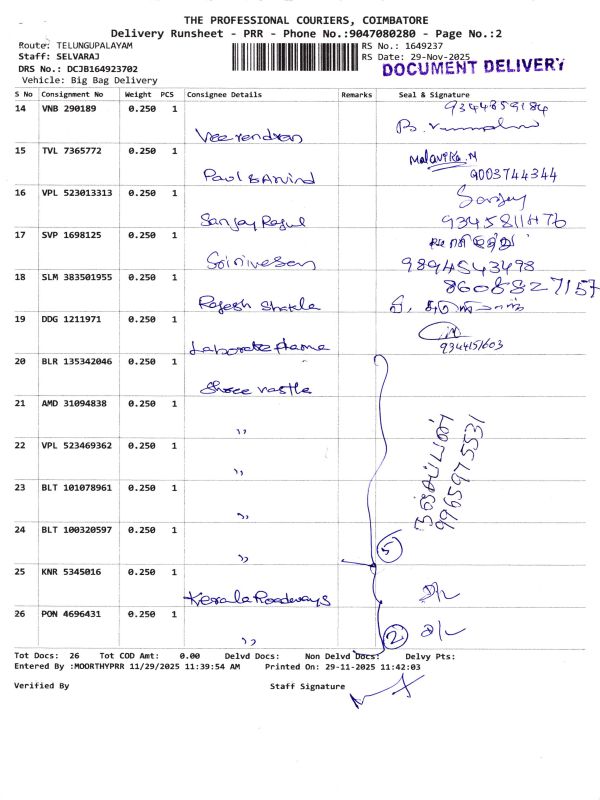 THE PROFESSIONAL COURIERS, COIMBATORE
Delivery Runsheet - PRR - Phone No.:9047080280 - Page No.:2
Route: TELUNGUPALAYAM RS No.: 1649237
Staff: SELVARAJ RS Date: 29-Nov-2025
DRS No.: DCJB164923702 DOCUMENT DELIVERY
Vehicle: Big Bag Delivery
S No Consignment No Weight PCS Consignee Details Remarks Seal & Signature
14 VNB 290189 0.250 1 9344859184
Veerendran
15 TVL 7365772 0.250 1 Malavika.N
Paul & Arvind 9003744344
16 VPL 523013313 0.250 1 Sanjay
Sanjay Ragul 9345811476
17 SVP 1698125 0.250 1
Srinivasan 9894543498
18 SLM 383501955 0.250 1 8608827157
Rajesh Shukla
19 DDG 1211971 0.250 1
9344151603
20 BLR 135342046 0.250 1
Shree Vastla
21 AMD 31094838 0.250 1
,,
22 VPL 523469362 0.250 1
,,
23 BLT 101078961 0.250 1
,,
24 BLT 100320597 0.250 1
,, 5
9965975531
25 KNR 5345016 0.250 1
Kerala Roadways D/L
26 PON 4696431 0.250 1
,, 2 D/L
Tot Docs: 26 Tot COD Amt: 0.00 Delvd Docs: Non Delvd Docs: Delvy Pts:
Entered By :MOORTHYPRR 11/29/2025 11:39:54 AM Printed On: 29-11-2025 11:42:03
Verified By Staff Signature